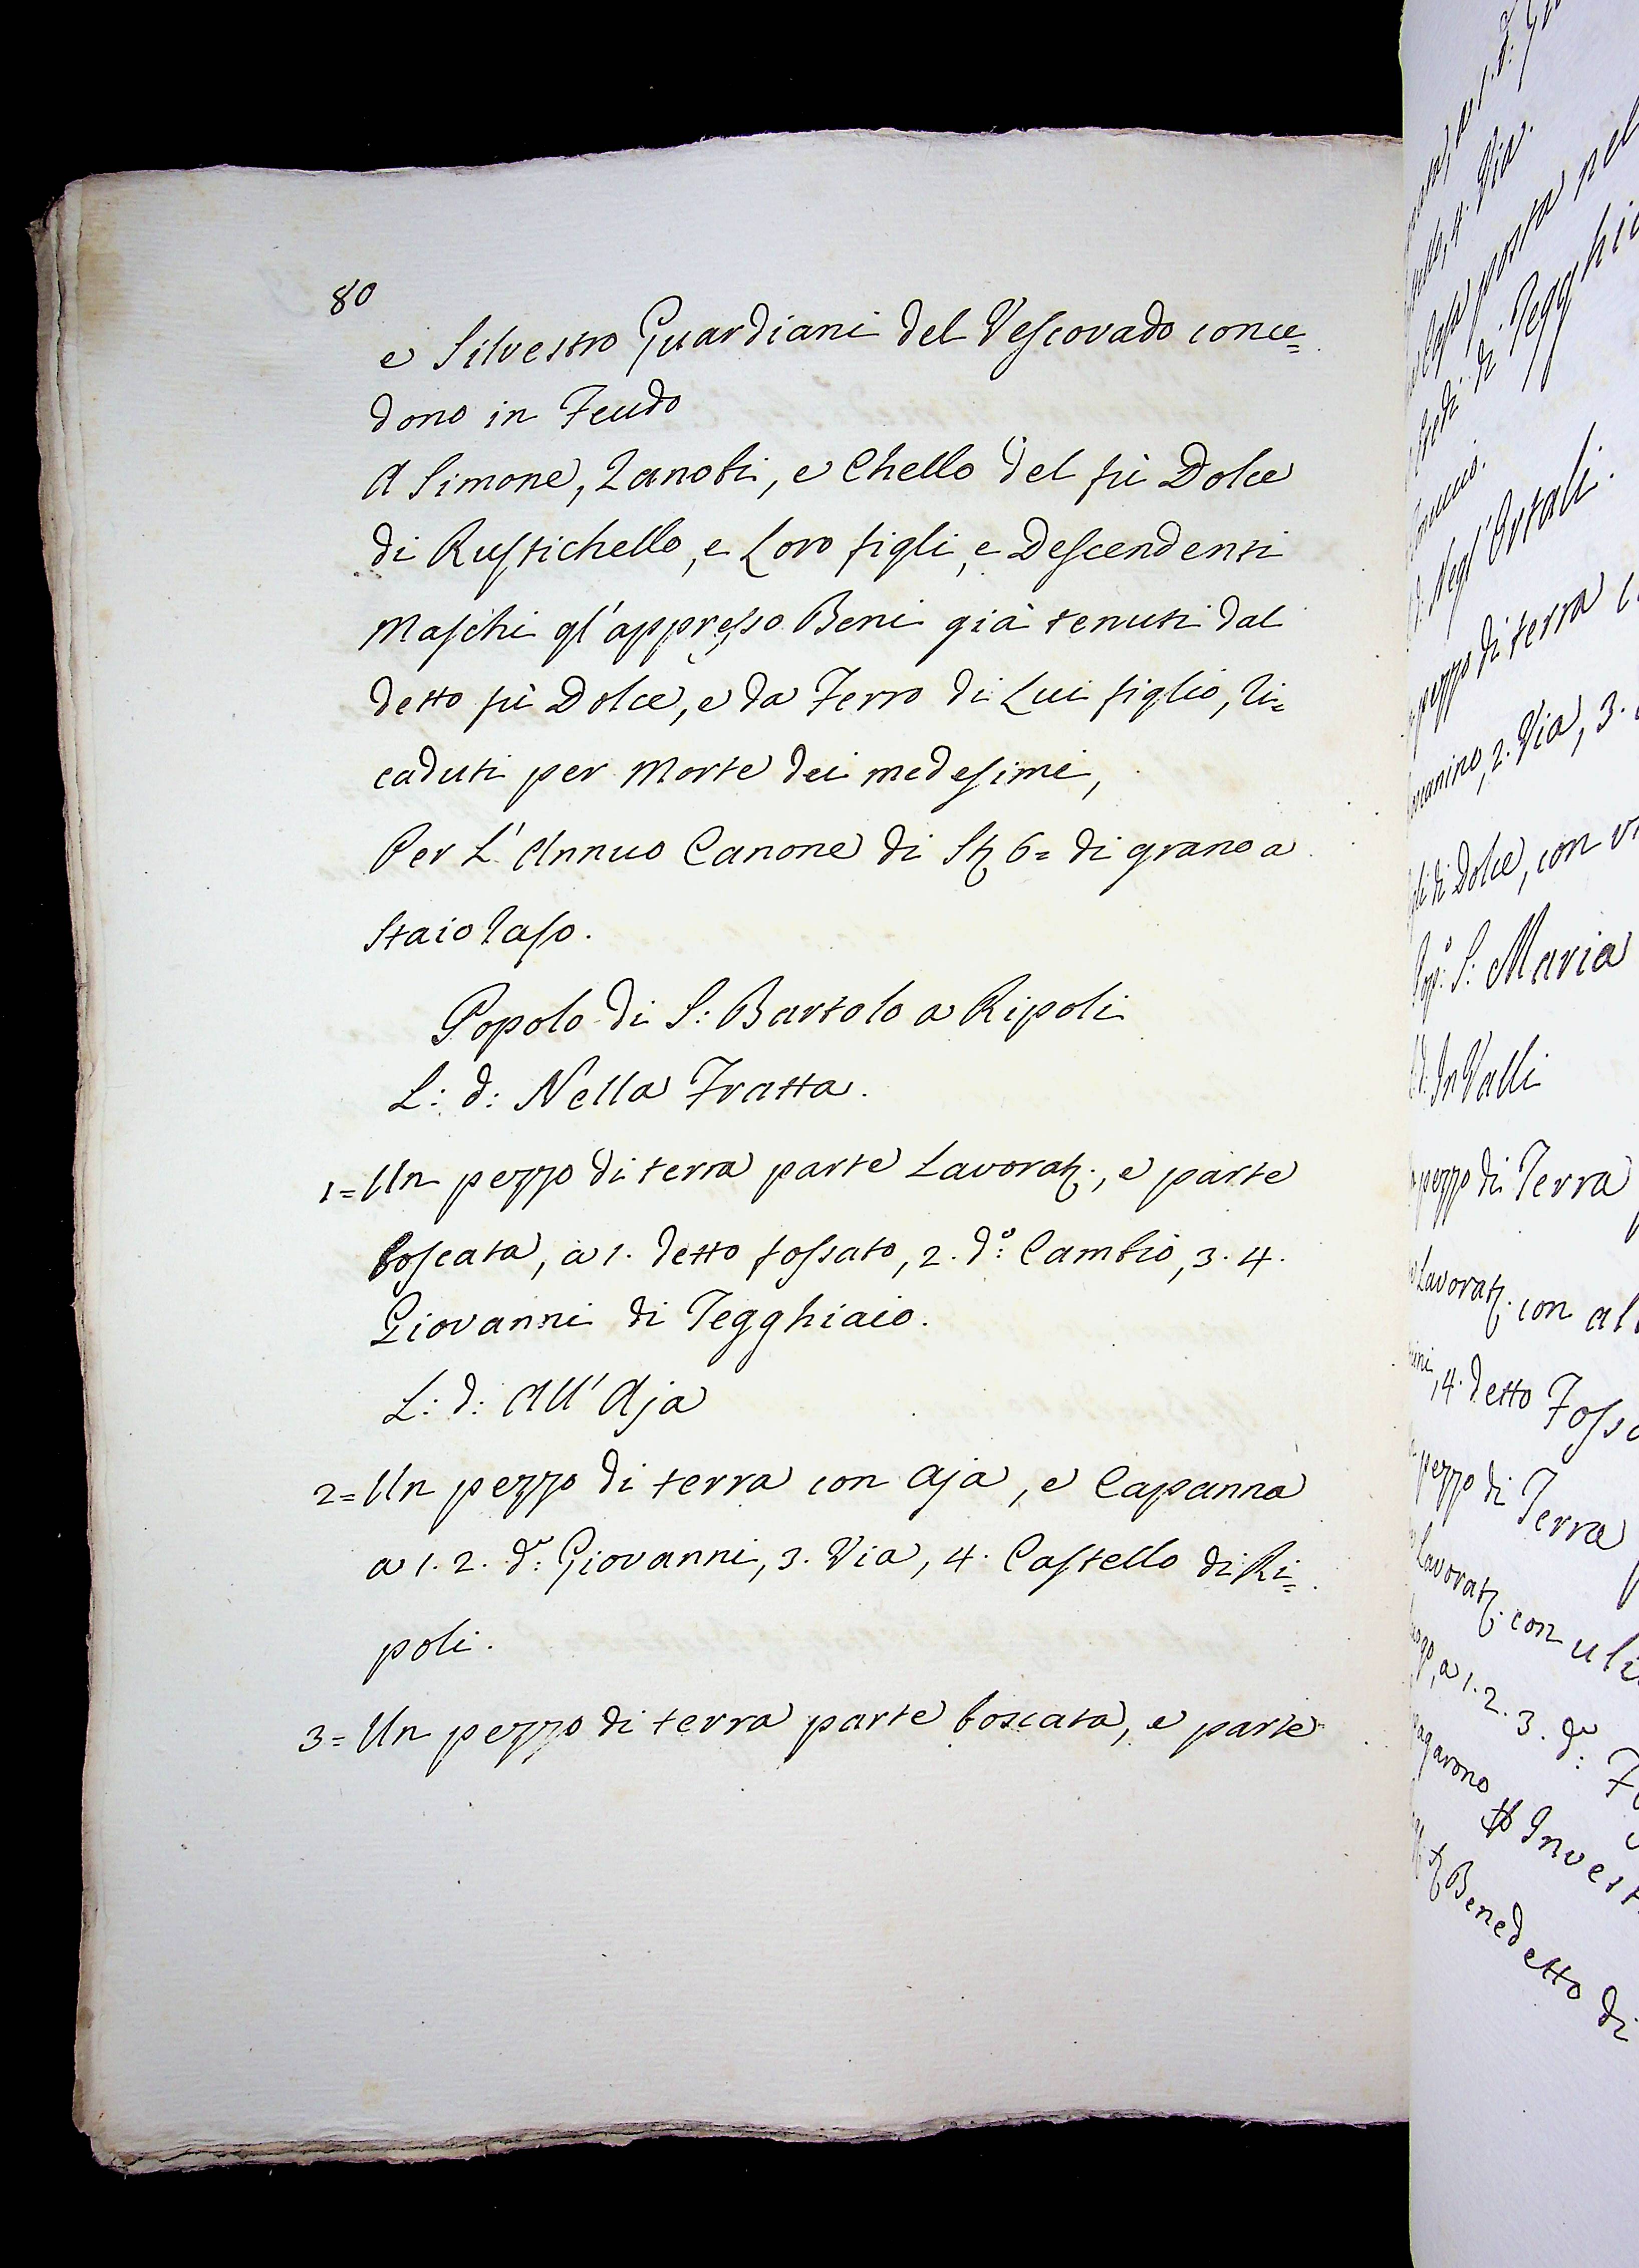 80
e Silvestro Guardiani del Vescovado conce=
dono in Feudo
A Simone, Zanobi, e Chello del fù Dolce
di Rustichello, e Loro figli, e Descendenti
Maschi gl'appresso Beni già tenuti dal
detto fù Dolce, e da Ferro di Lui figlio, ri=
caduti per Morte dei medesimi,
Per L'Annuo Canone di St 6= di grano a
Staio raso.
Popolo di S: Bartolo a Ripoli
L: d: Nella Fratta.
1= Un pezzo di terra parte Lavorat:, e parte
boscata, a 1. detto fossato, 2. d:o Cambio, 3. 4.
Giovanni di Tegghiaio.
L: d: All'Aja
2= Un pezzo di terra con Aja, e Capanna
a 1. 2. d:o Giovanni, 3. Via, 4. Castello di Ri=
poli.
3= Un pezzo di terra parte boscata, e parte
4. Via.
posta nel
di Tegghi
Negl'Ortali.
pezzo di terra
2. Via, 3.
di Dolce, con
S: Maria
In Valli
pezzo di Terra
Lavorat: con
4. detto Foss
pezzo di Terra
Lavorat: con uli
a 1. 2. 3. d:o
Invest
Benedetto di